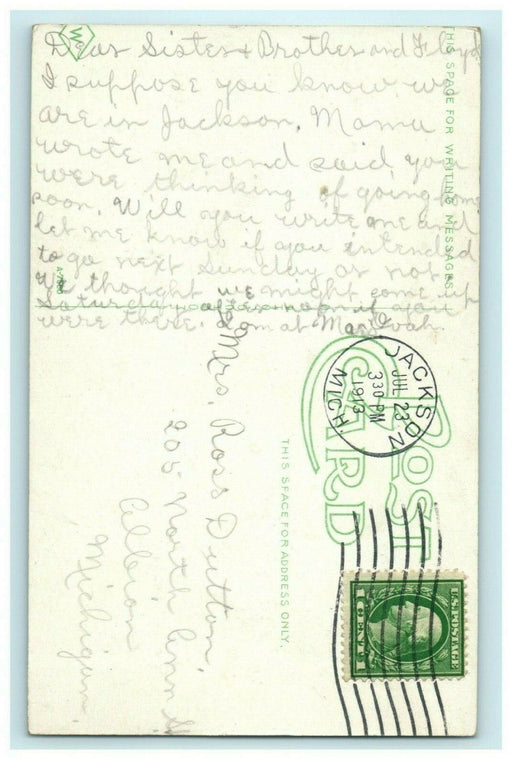 Dear Sister & Brother and Floyd
I suppose you know we
are in Jackson. Mama
wrote me and said you
were thinking of going home
soon. Will you write me and
let me know if you intended
to go next Sunday or not
We thought we might come up
Saturday afternoon if you
were there. I am at
THIS SPACE FOR WRITING MESSAGES
W
JACKSON
JUL 23
330 PM
1913
MICH.
POST CARD
THIS SPACE FOR ADDRESS ONLY.
U.S. POSTAGE
1 CENT 1
Mrs. Ross Dutton,
205 North Ann St
Albion,
Michigan.